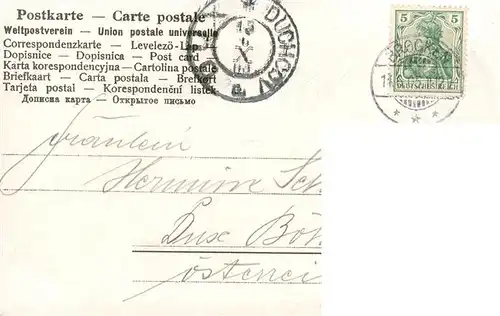 Postkarte — Carte postale
Weltpostverein — Union postale universelle
Correspondenzkarte — Levelező-Lap
Dopisnice — Dopisnica — Post card
Karta korespondencyjna — Cartolina postale
Briefkaart — Carta postala — Brefkort
Tarjeta postal — Korespondenční listek
Дописна карта — Открытое письмо
DUCHCOV
5 5
DEUTSCHES REICH
Fräulein
Hermine Sch
Dux Böh
Östenei